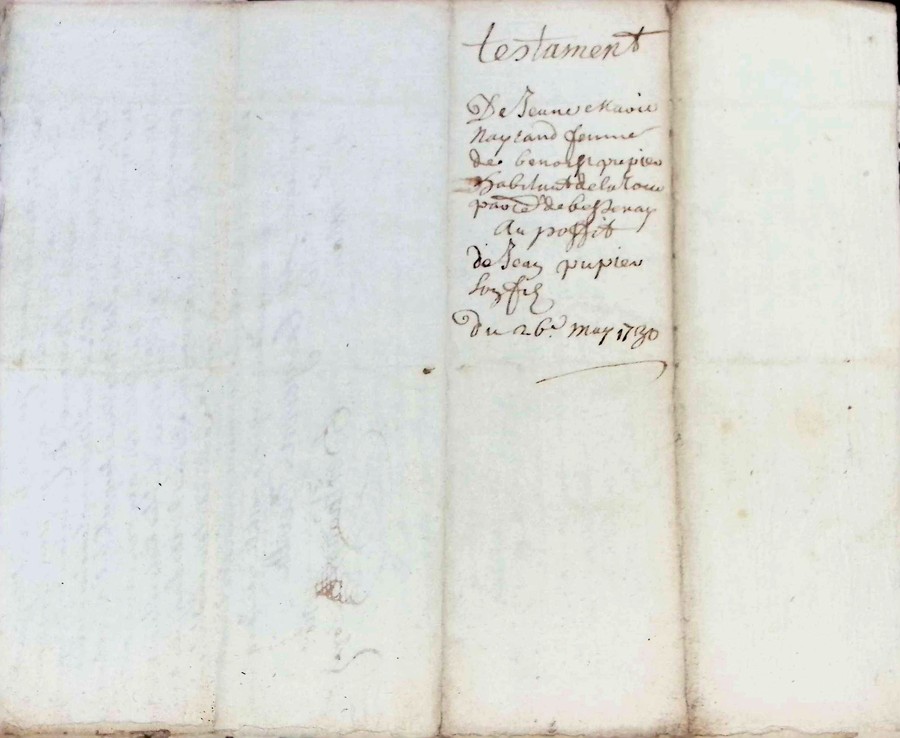 testament
De Jeanne Marie
Nayrand femme
de benoist pupier
habitant de la Tour
paroe de bessenay
Au proffit
de Jean pupier
son fils
du 26e May 1730